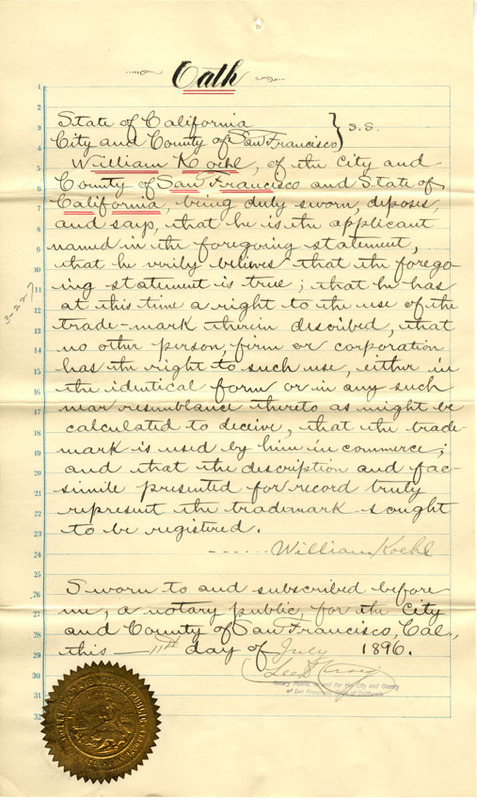 Oath
State of California } S.S.
City and County of San Francisco
William Koehl, of the City and
County of San Francisco and State of
California, being duly sworn, deposes
and says, that he is the applicant
named in the foregoing statement,
that he verily believes that the forego-
ing statement is true; that he has
at this time a right to the use of the
trade-mark therein discribed, that
no other person, firm or corporation
has the right to such use, either in
the identical form or in any such
near resemblance thereto as might be
calculated to deceive, that the trade-
mark is used by him in commerce;
and that the description and fac-
simile presented for record truly
represent the trademark sought
to be registered.
William Koehl
Sworn to and subscribed before
me, a notary public, for the City
and County of San Francisco, Cal.,
this 11th day of July 1896.
Notary Public, in and for the City and County
of San Francisco, State of California